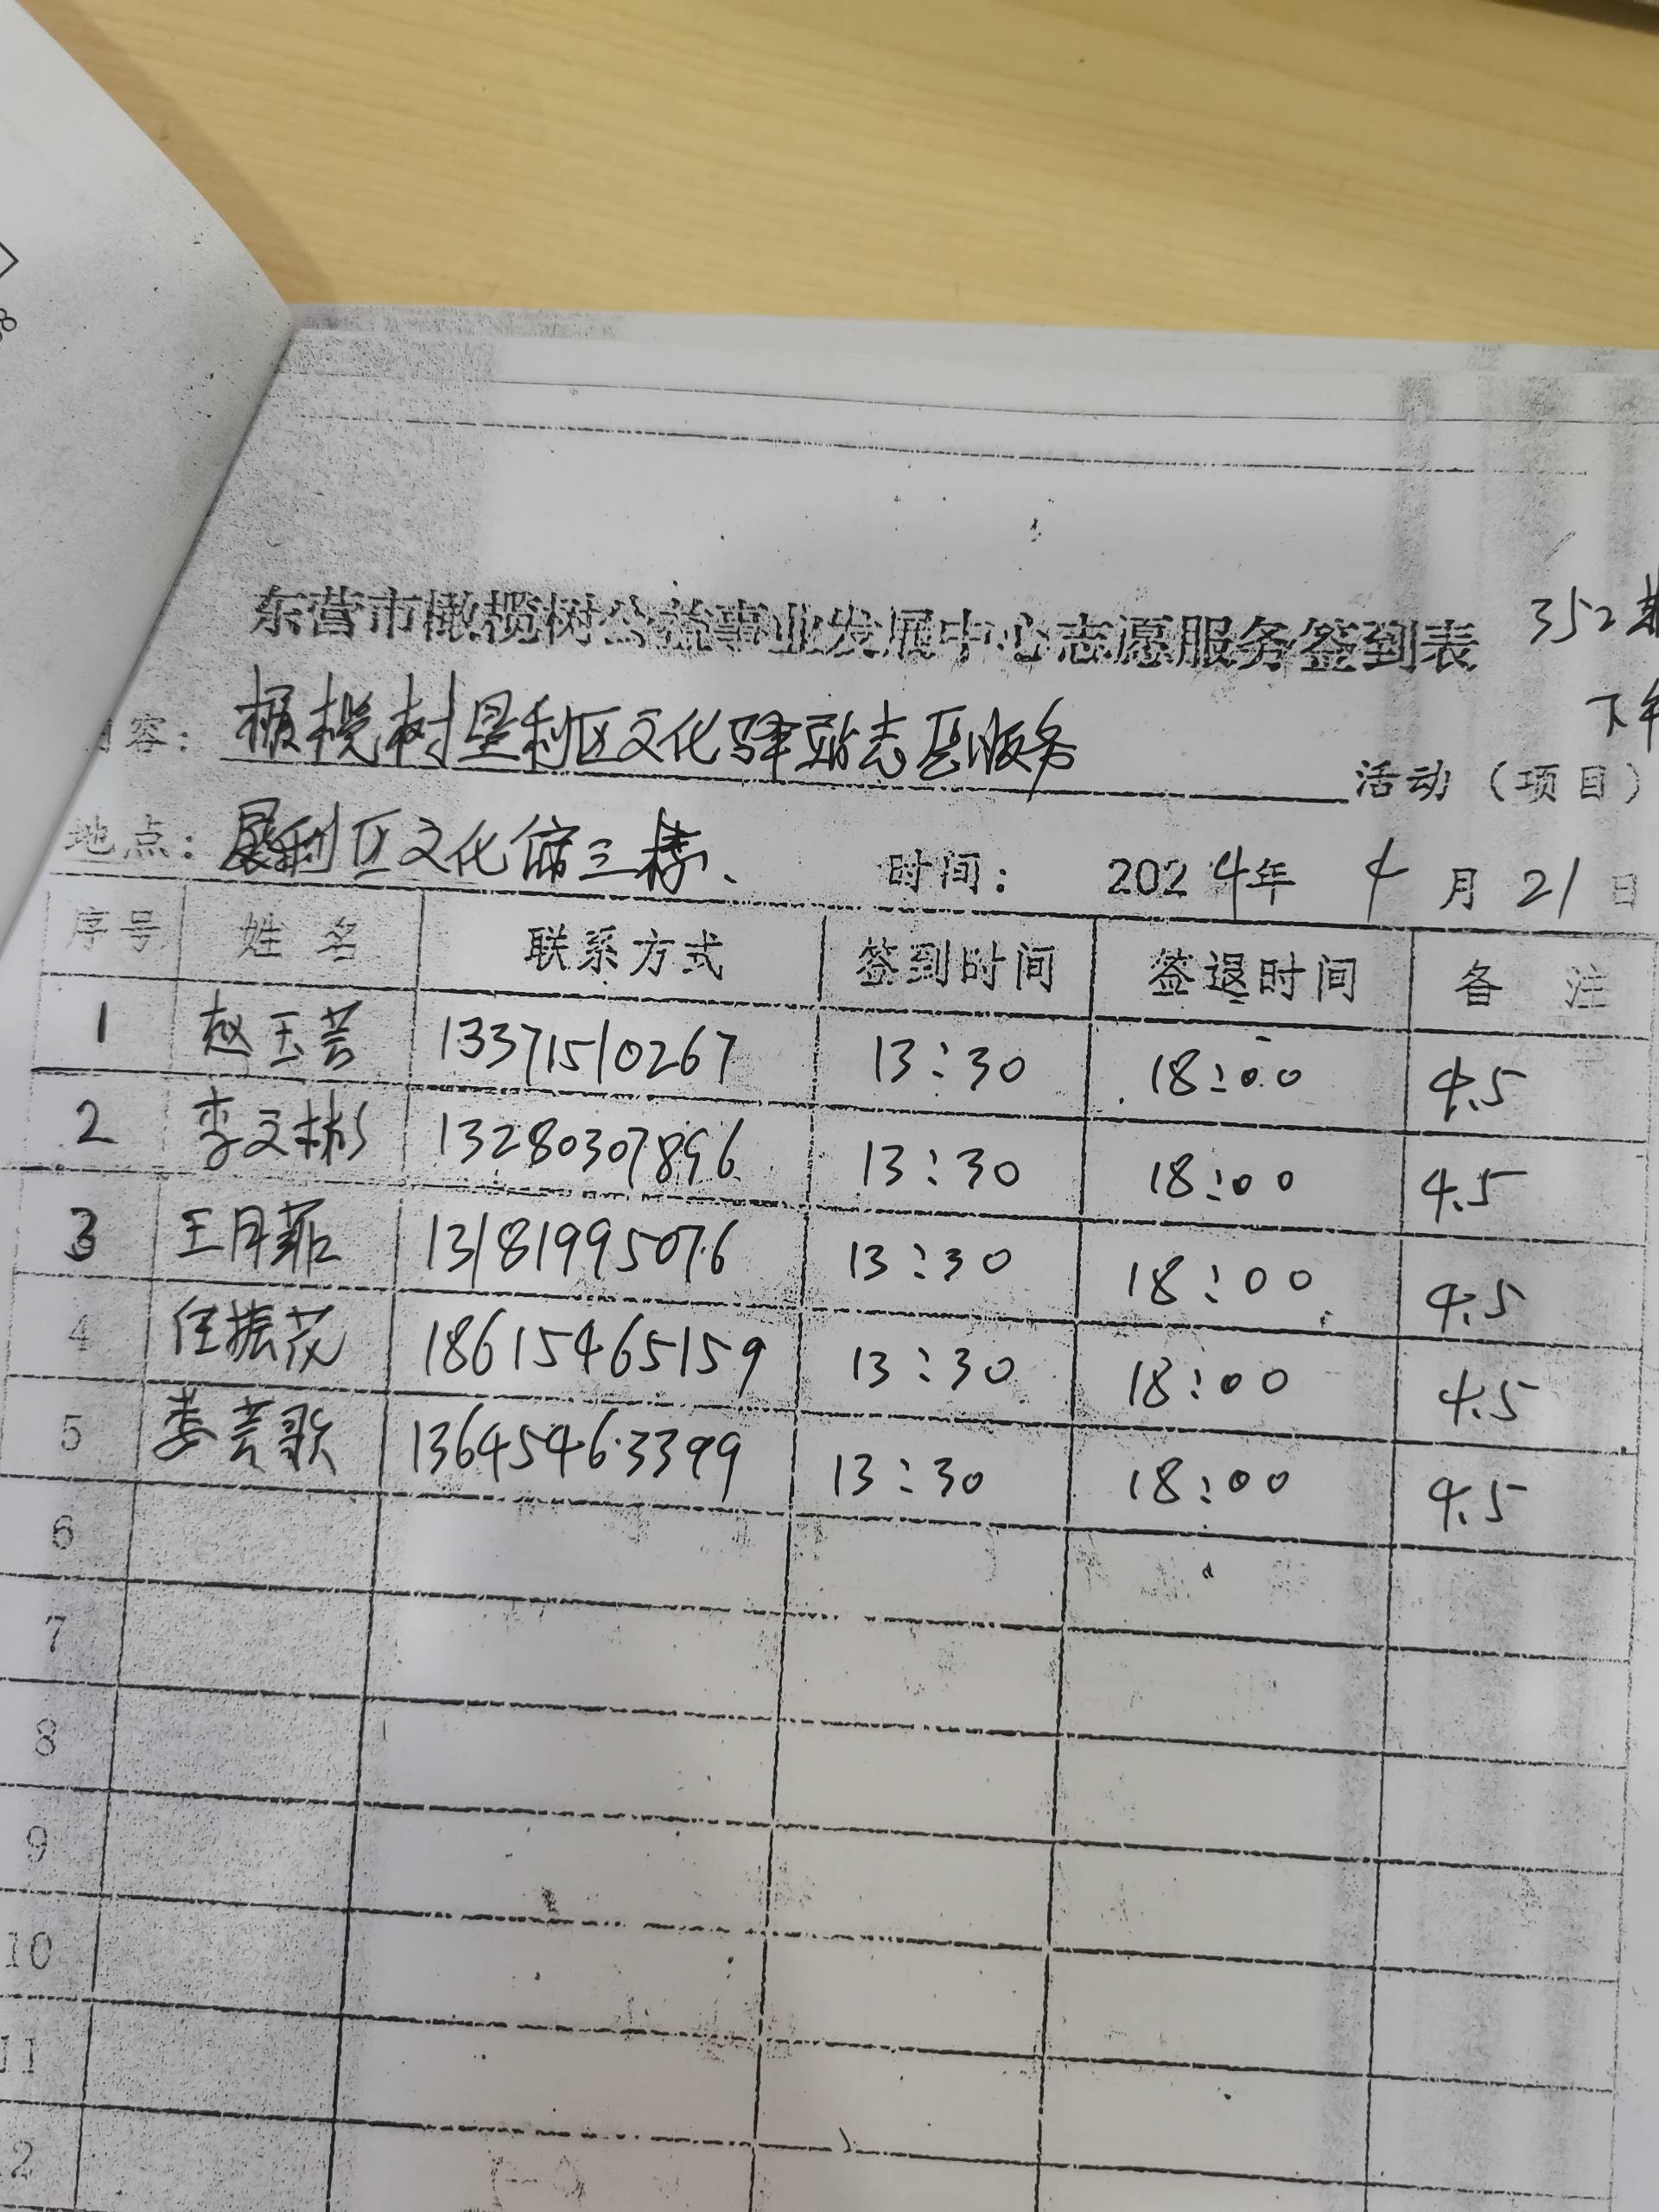 东营市橄榄树公益事业发展中心志愿服务签到表 352
下午
容：橄榄树垦利区文化驿站志愿服务 活动（项目）
地点：垦利区文化馆三楼、 时间：2024年 4月21日
序号 姓名 联系方式 签到时间 签退时间 备注
1 赵玉芸 13371510267 13:30 18:00 4.5
2 李文彬 13280307896 13:30 18:00 4.5
3 王月 13181995076 13:30 18:00 4.5
4 任振花 18615465159 13:30 18:00 4.5
5 娄芸歌 13645463399 13:30 18:00 4.5
6
7
8
9
10
11
2